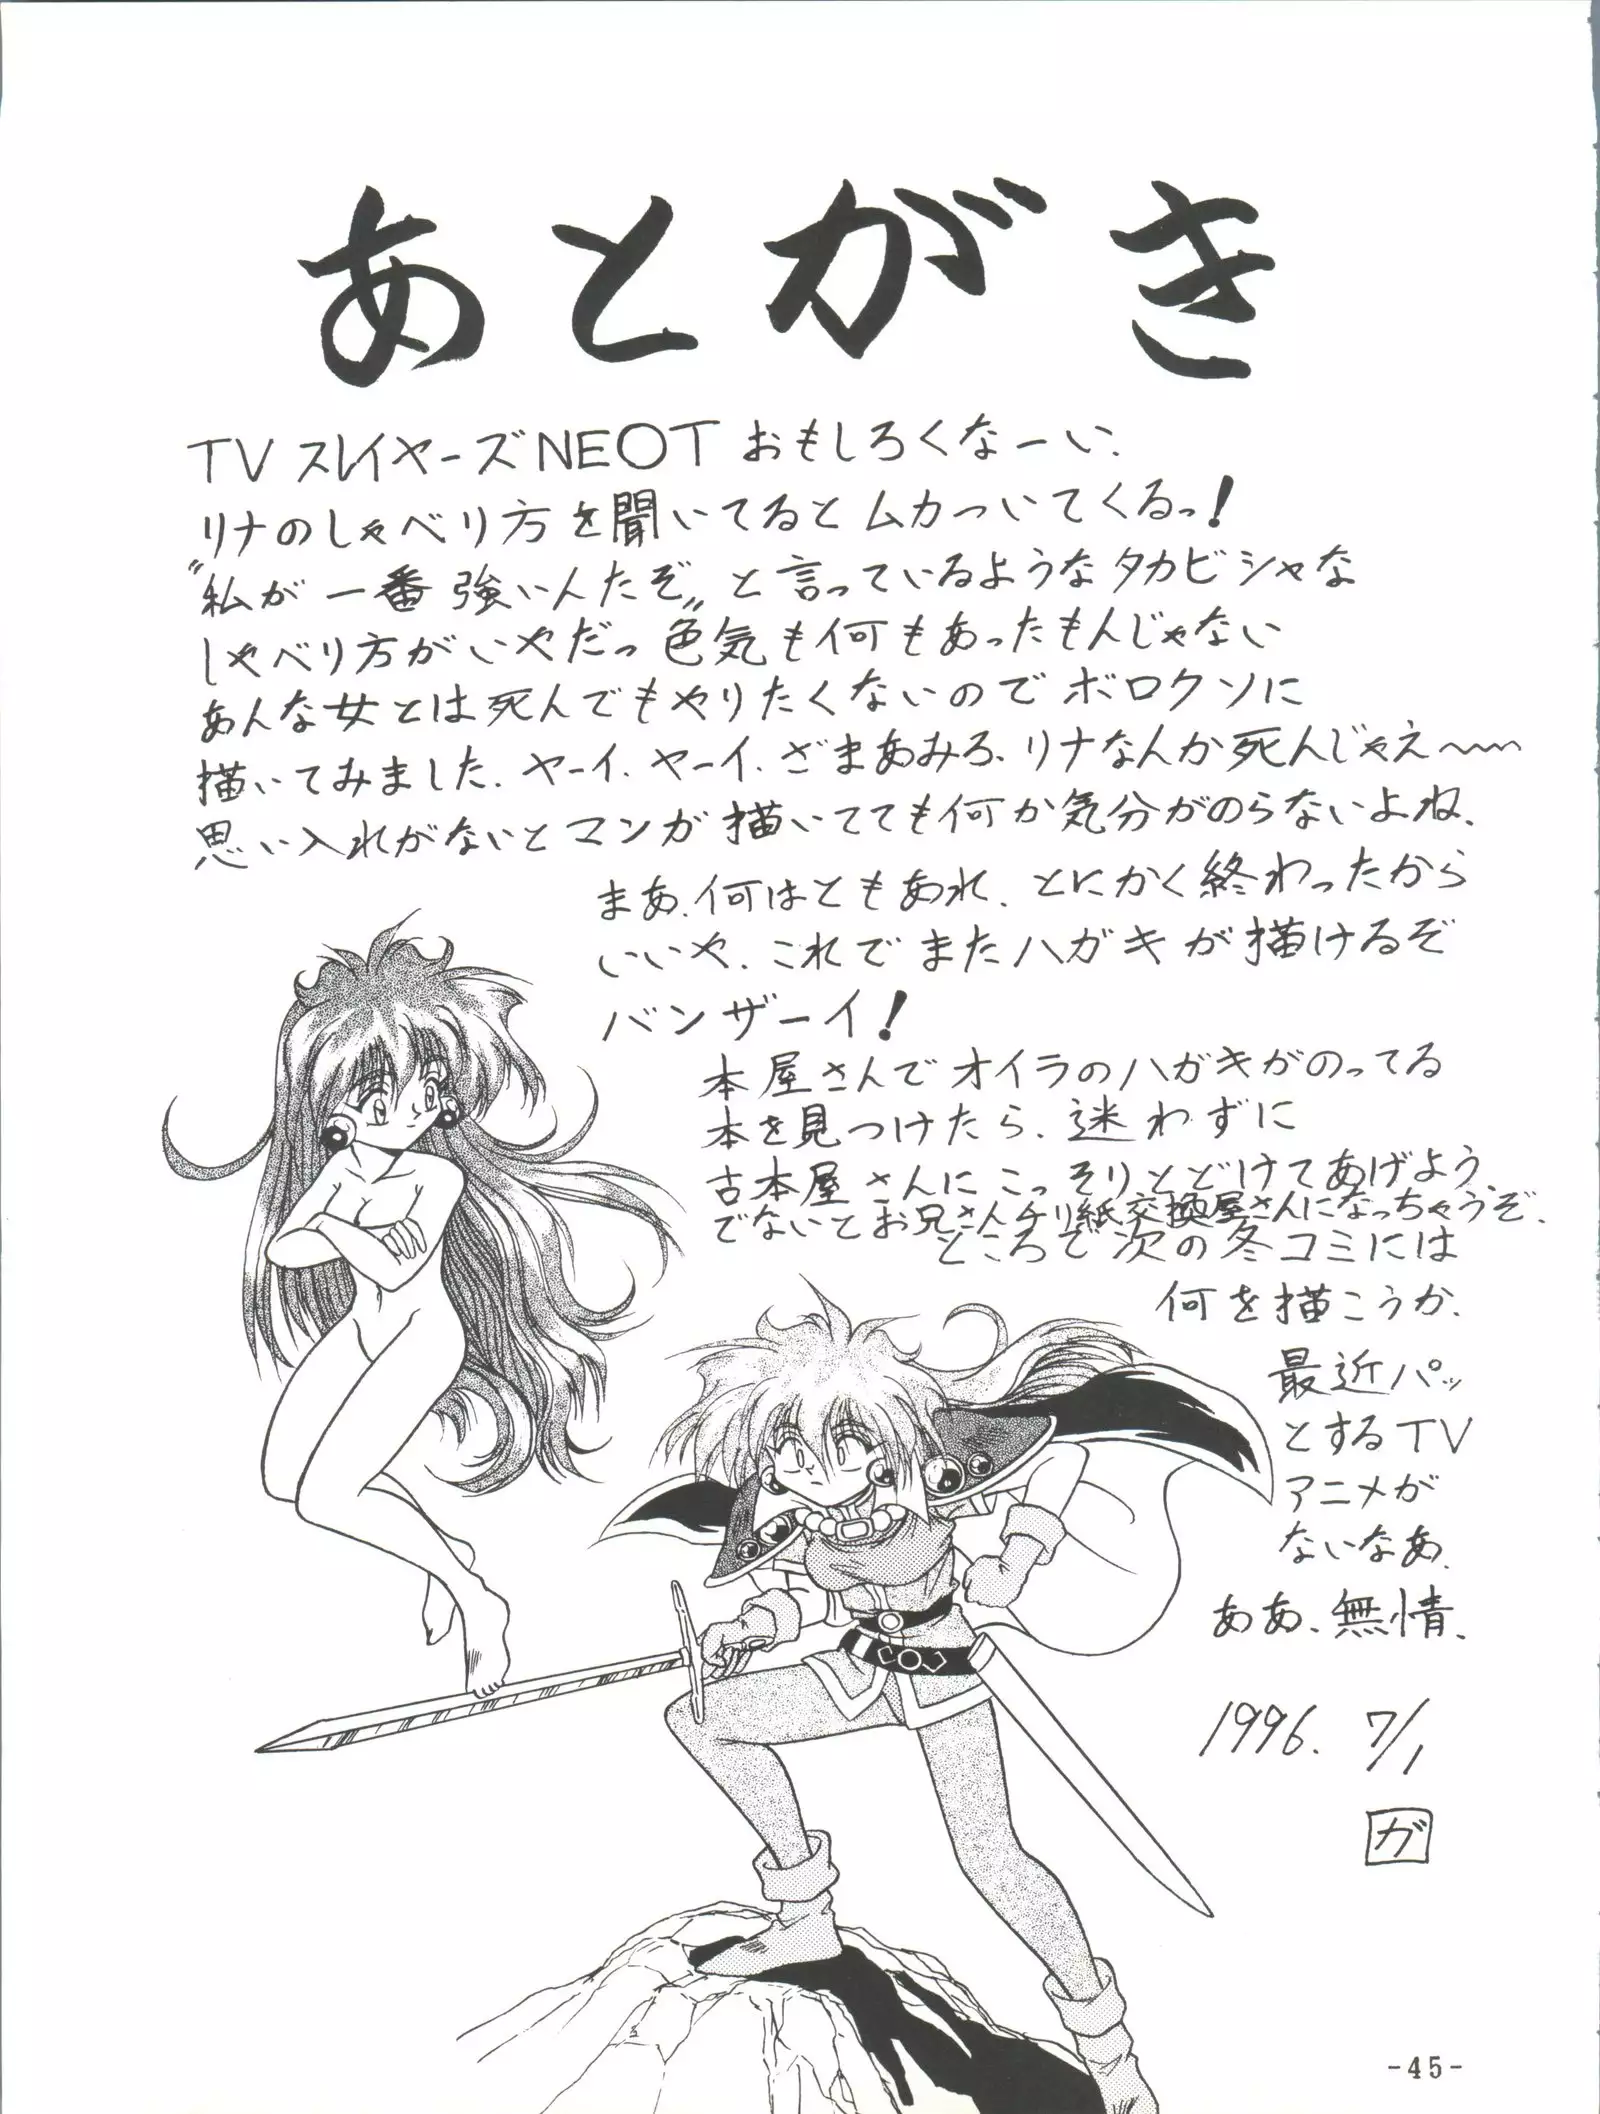 あとがき
TVスレイヤーズNE〇Tおもしろくなーい.
リナのしゃべり方を聞いてるとムカついてくるっ!
〝私が一番強いんだぞ〟と言っているようなタカビシャな
しゃべり方がいやだっ色気も何もあったもんじゃない
あんな女とは死んでもやりたくないのでボロクソに
描いてみました.ヤーイ.ヤーイ.ざまあみろ.リナなんか死んじゃえ〜〜
思い入れがないとマンガ描いてても何か気分がのらないよね.
まあ.何はともあれ.とにかく終わったから
いいや.これでまたハガキが描けるぞ
バンザーイ!
本屋さんでオイラのハガキがのってる
本を見つけたら.迷わずに
古本屋さんにこっそりとどけてあげよう.
でないとお兄さんチリ紙交換屋さんになっちゃうぞ.
ところで次の冬コミには
何を描こうか.
最近パッ
とするTV
アニメが
ないなあ.
ああ.無情.
1996. 7/1
ガ
-45-